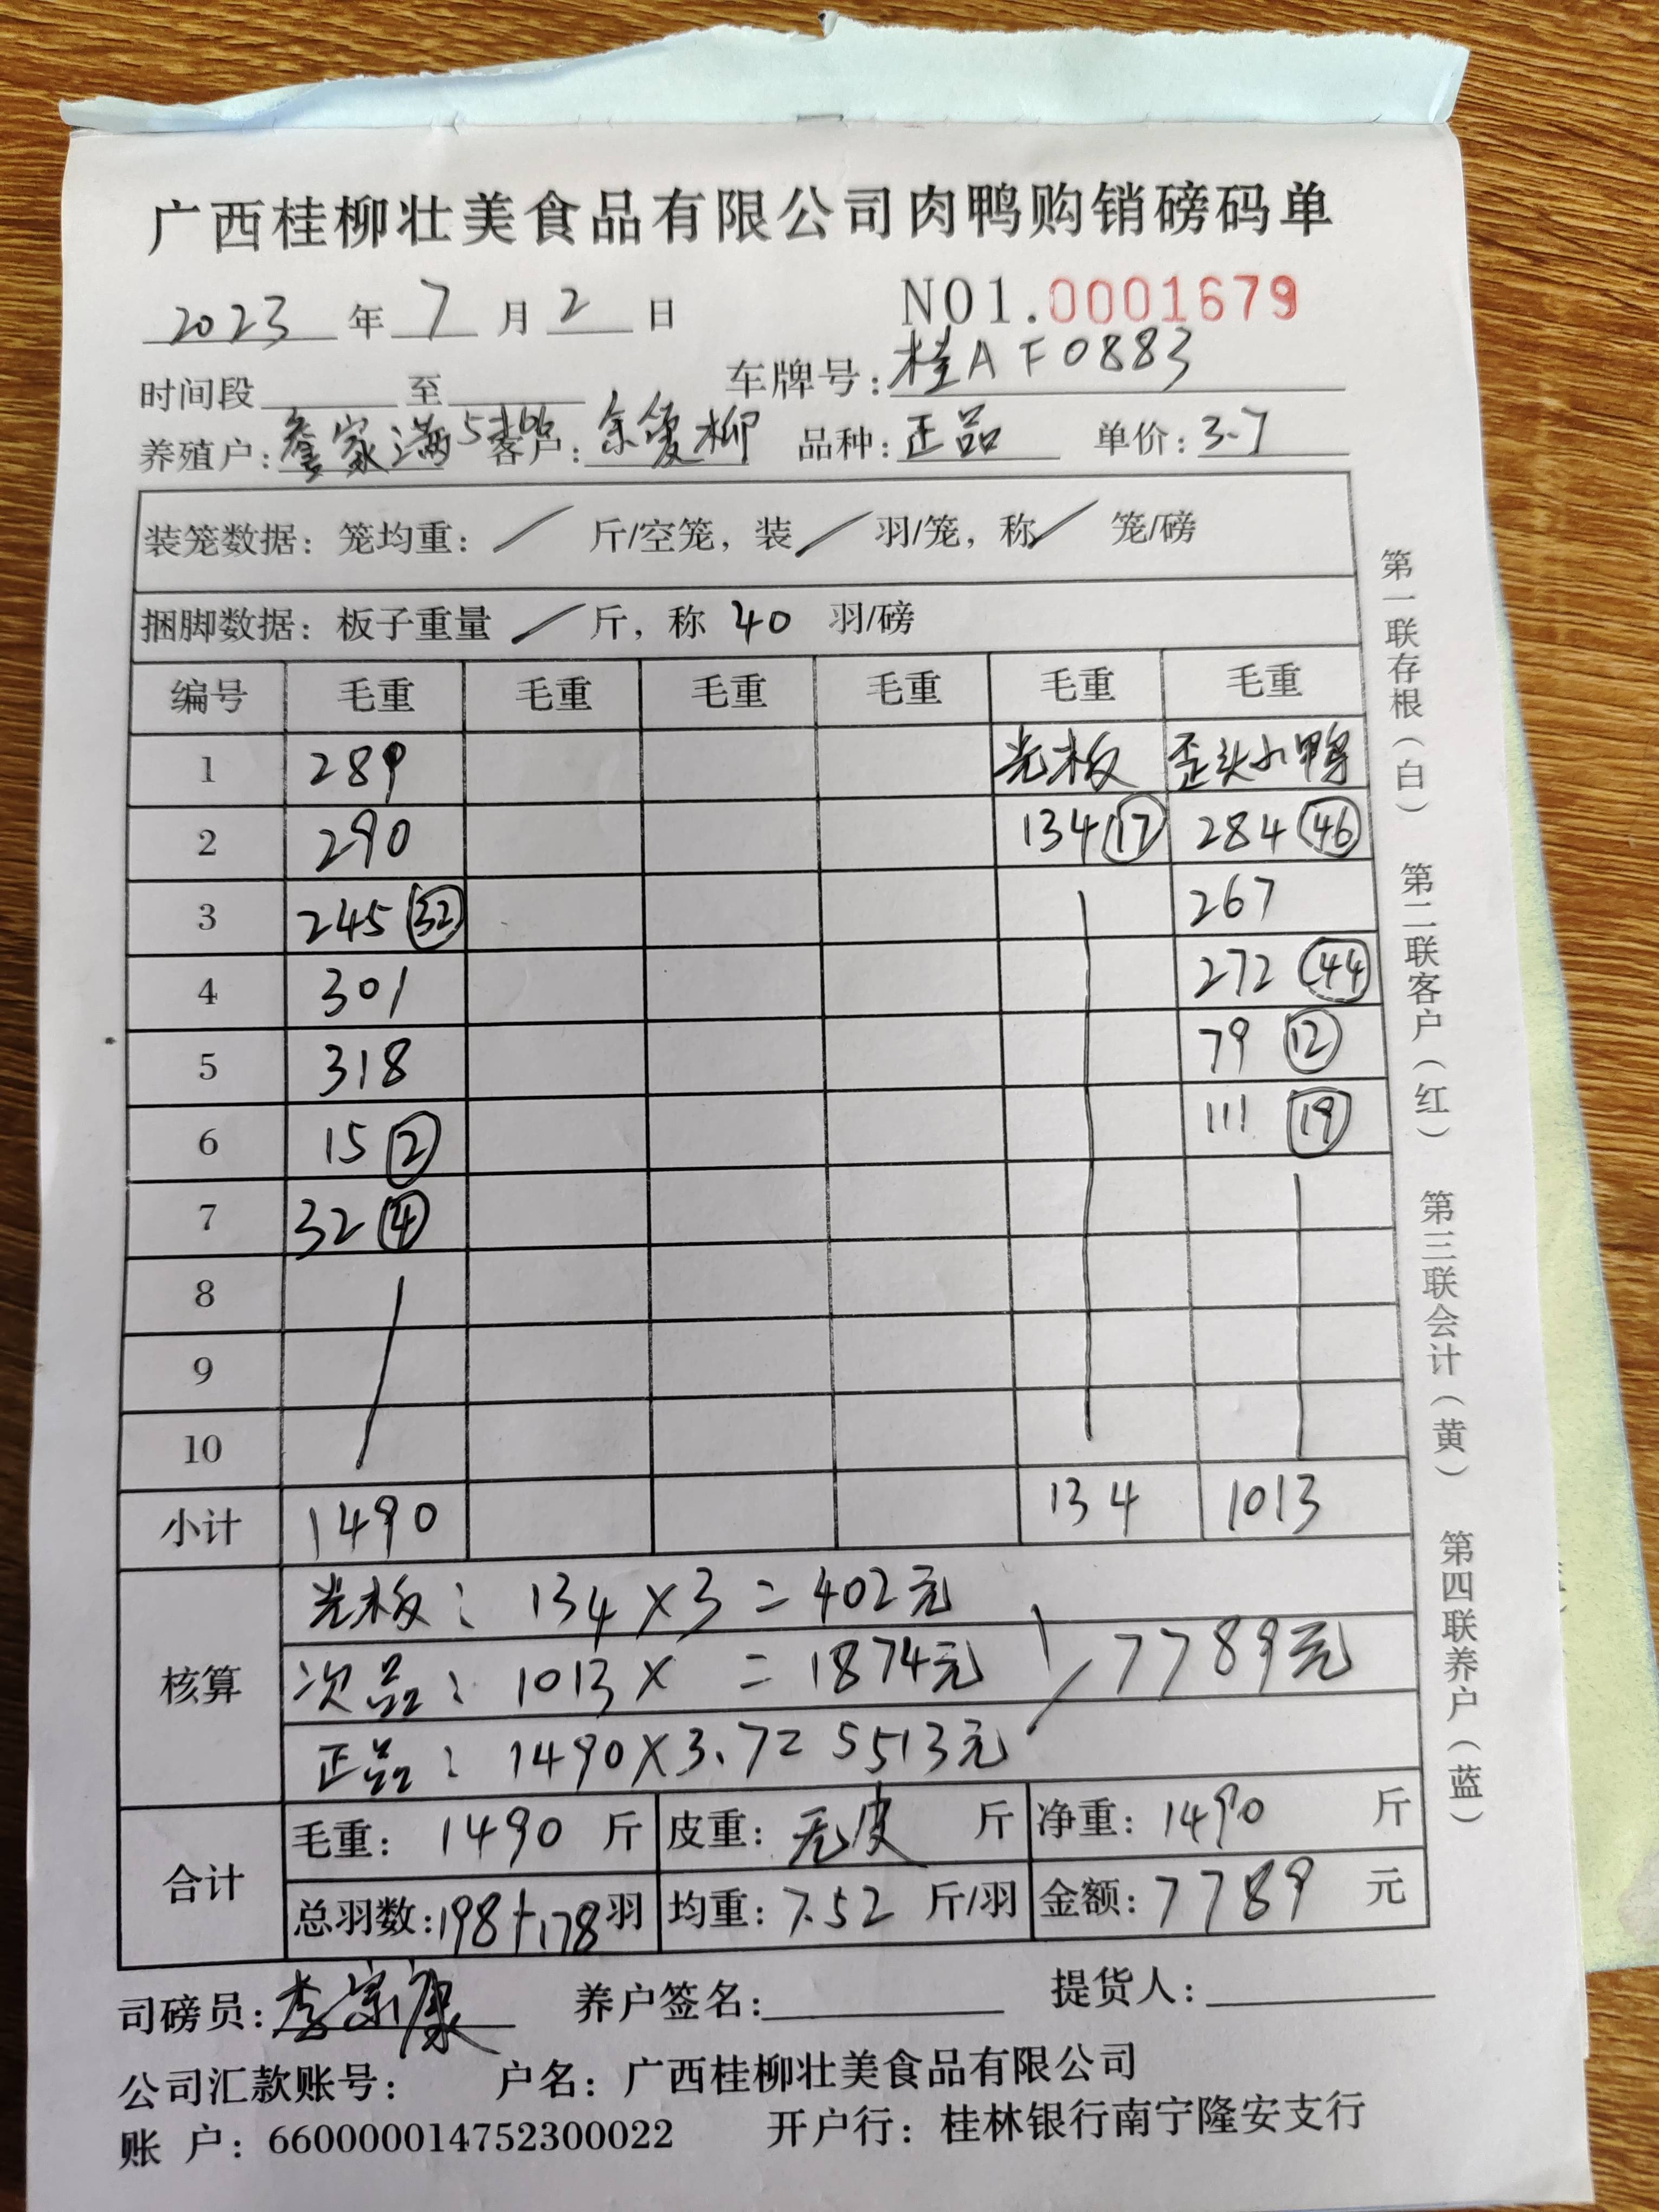 广西桂柳壮美食品有限公司肉鸭购销磅码单
2023年7月2日 NO1.0001679
时间段 至 车牌号:桂AF0883
养殖户:詹家满5 客户:余复柳 品种:正品 单价:3.7
装笼数据:笼均重:/斤/空笼,装/羽/笼,称/笼/磅
捆脚数据:板子重量/斤,称40羽/磅
编号 毛重 毛重 毛重 毛重 毛重 毛重
1 289 光板 歪头小鸭
2 290 134 17 284 46
3 245 32 267
4 301 272 44
5 318 79 12
6 15 2 111 19
7 32 4
8
9
10
小计 1490 134 1013
核算
光板:134×3=402元
次品:1013× =1874元 7789元
正品:1490×3.7=5513元
合计
毛重:1490斤 皮重:无皮斤 净重:1490斤
总羽数:198+178羽 均重:7.52斤/羽 金额:7789元
司磅员:李宗康 养户签名: 提货人:
公司汇款账号: 户名:广西桂柳壮美食品有限公司
账 户:660000014752300022 开户行:桂林银行南宁隆安支行
第一联存根(白) 第二联客户(红) 第三联会计(黄) 第四联养户(蓝)